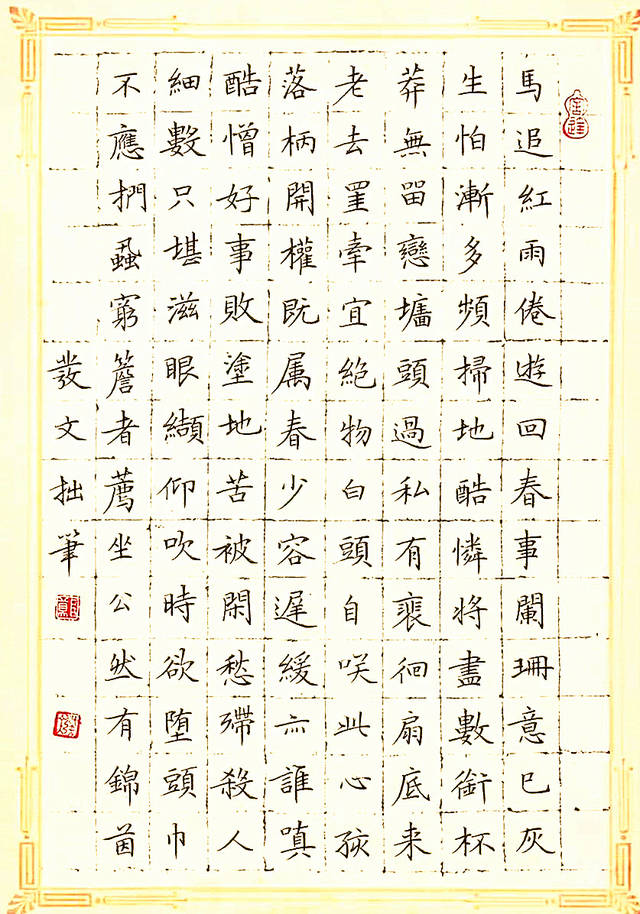 馬追紅雨倦遊回春事闌珊意已灰
生怕漸多頻掃地酷憐將盡數銜杯
莽無留戀墻頭過私有裵徊扇底来
老去罣牽宜絶物白頭自咲此心孩
落柄開權既属春少容遲緩亦誰嗔
酷憎好事敗塗地苦被閑愁殢殺人
細數只堪滋眼纈仰吹時欲堕頭巾
不應捫蝨窮簷者薦坐公然有錦茵
發文拙筆